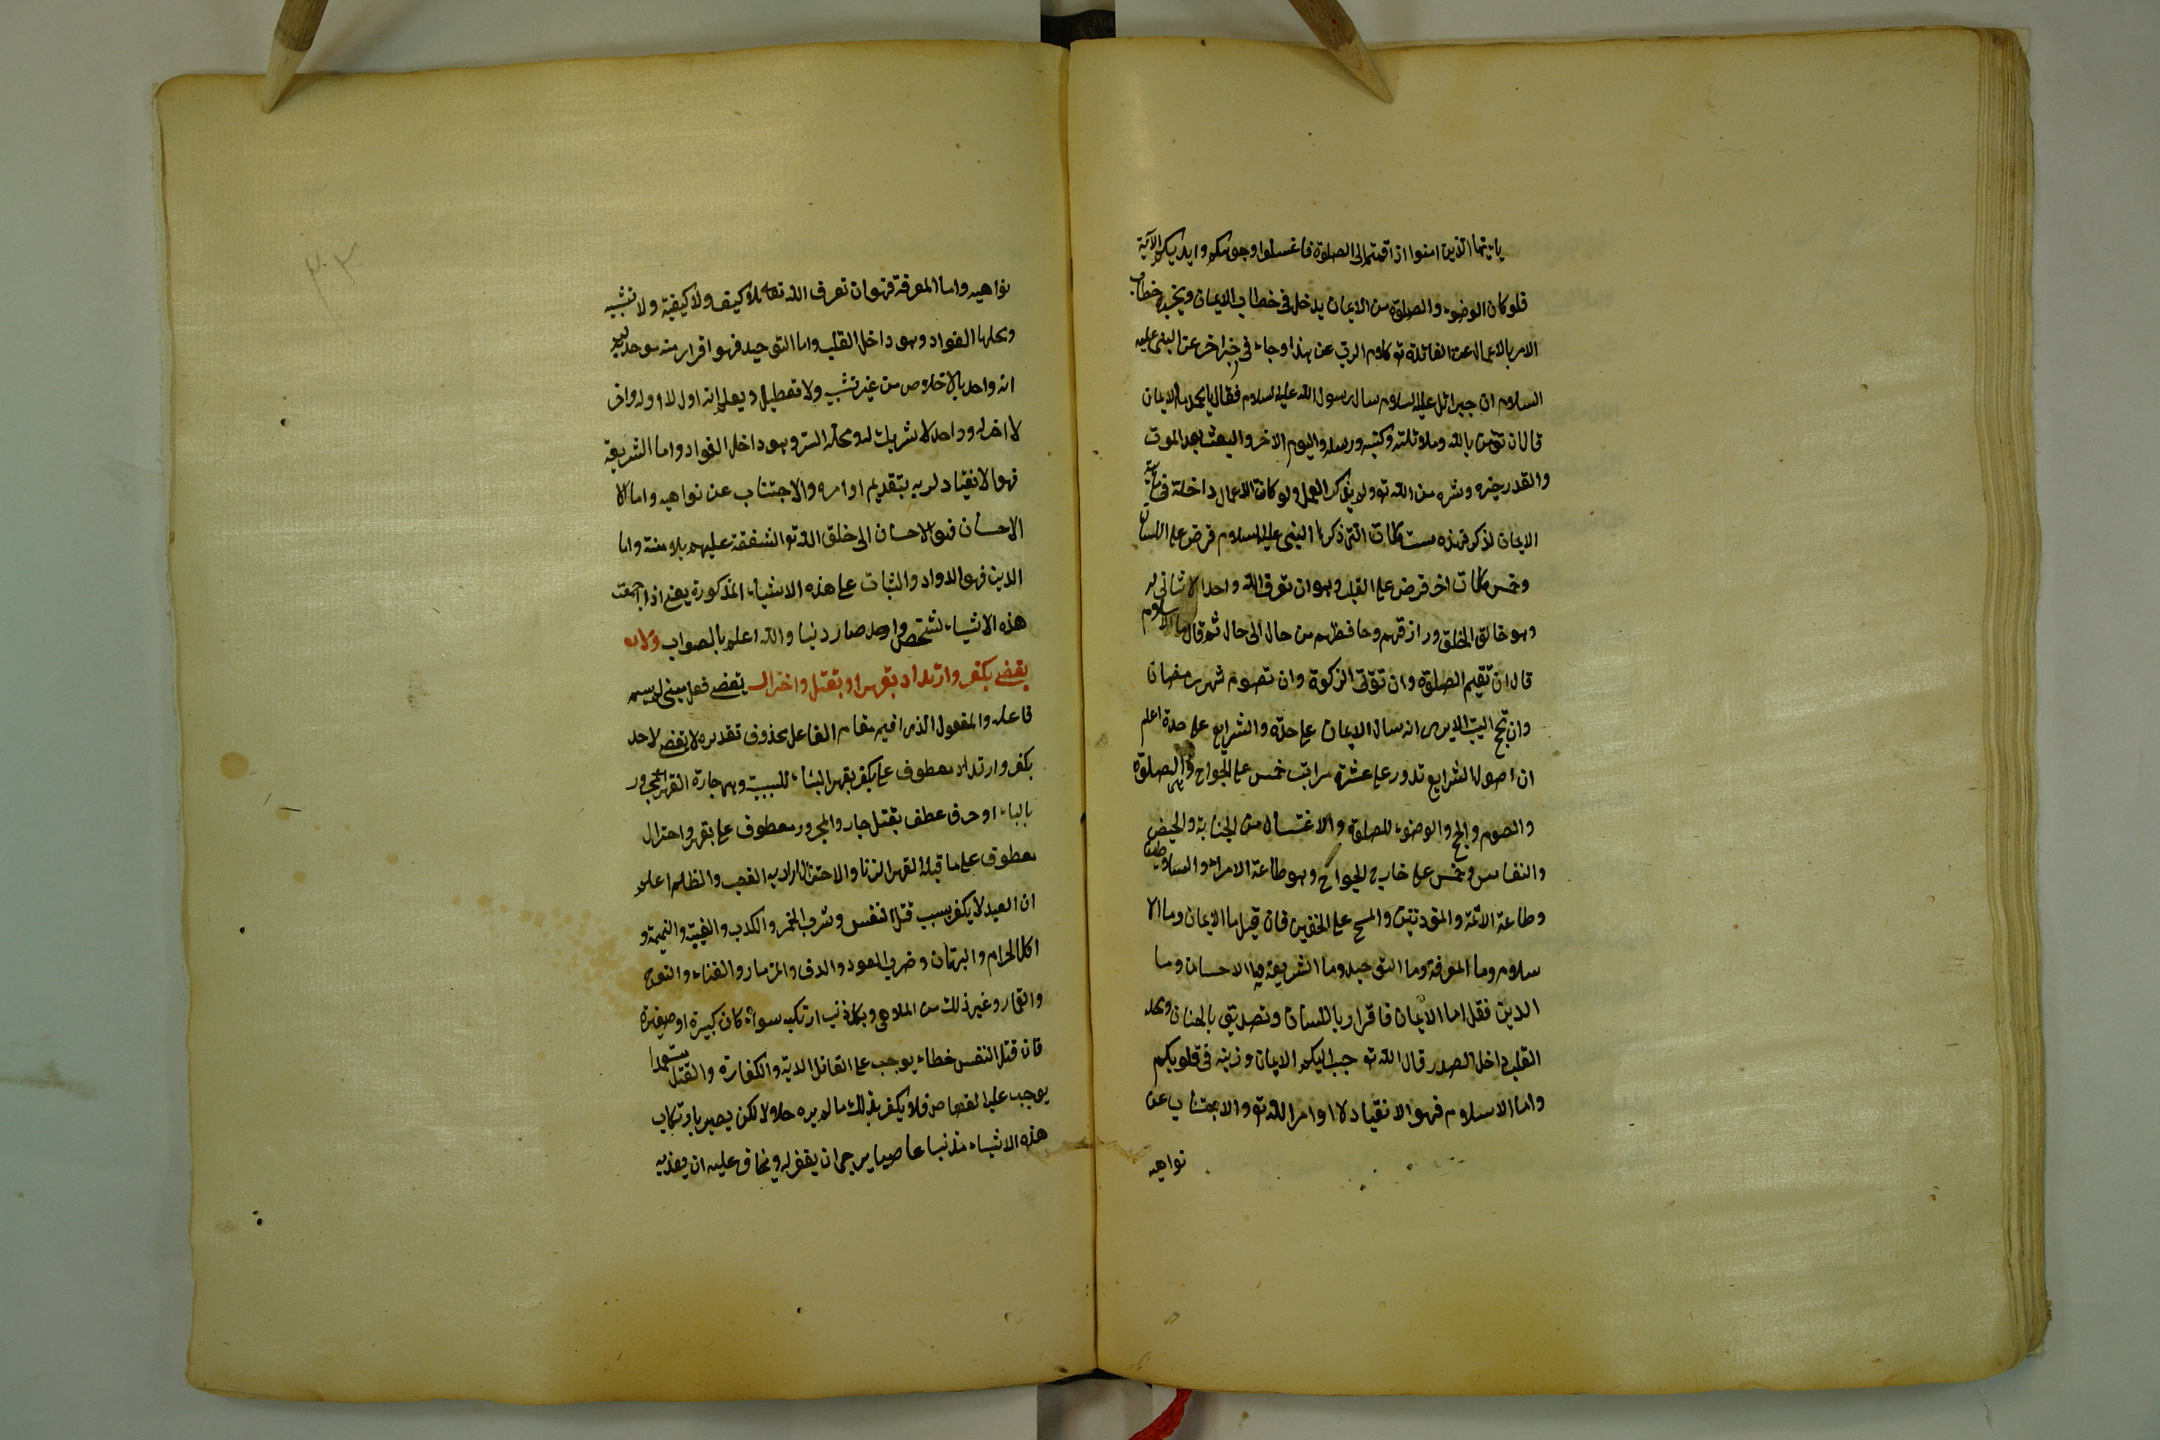 يا ايها الذين امنوا اذا قمتم الى الصلوة فاغسلوا وجوهكم وايديكم الآية
فلو كان الوضوء والصلوة من الايمان يدخل في خطاب الايمان خطاب
الامر بالاعمال عن الفائدة تع كلام الرب عن هذا وجاء في خبر اخر عن النبي عليه
السلام ان جبرائل عليه السلام سال رسول الله عليه السلام فقال يا محمد ما الايمان
قال ان تؤمن بالله وملائكته وكتبه ورسله واليوم الاخر والبعث بعد الموت
والقدر خيره وشره من الله تع ولم يذكر العمل ولو كانت الاعمال داخلة في
الايمان لذكر فهذه ست كلمات التي ذكرها النبي عليه السلام فرض على اللسان
وخمس كلمات اخر فرض على القلب وهو ان تعرف الله واحدا لا ثاني له
وهو خالق الخلق ورازقهم وحافظهم من حال الى حال ثم قال ما الاسلام
قال ان تقيم الصلوة وان تؤتى الزكوة وان تصوم شهر رمضان
وان تحج البيت الا يرى انه سال الايمان على حدة والشرايع على حدة اعلم
ان اصول الشرايع تدور على عشرة مراتب خمس على الجوارح وهي الصلوة
والصوم والحج والوضوء للصلوة والاغتسال من الجنابة والحيض
والنفاس وخمس على خارج الجوارح وهو طاعة الامراء والسلاطين
وطاعة الائمة والمؤذنين والمسح على الخفين فان قيل ما الايمان وما الا
سلام وما المعرفة وما التوحيد وما الشريعة وما الاحسان وما
الدين فقل اما الايمان فاقرار باللسان وتصديق بالجنان ومحله
القلب داخل الصدر قال الله تع حبب اليكم الايمان وزينه في قلوبكم
واما الاسلام فهو الانقياد لاوامر الله تع والاجتناب عن
نواهيه
٣٠٢
نواهيه واما المعرفة فهو ان تعرف الله تعالى بلا كيف ولا كيفية ولا تشبيه
ومحلها الفواد وهو داخل القلب واما التوحيد فهو اقرار منه موحد لربه
انه واحد بالاخلاص من غير تشبيه ولا تعطيل ويعلم انه اول لا اول له واخر
لا اخر له وواحد لا شريك له ومحله السر وهو داخل الفواد واما الشريعة
فهو الانقياد لربه بتقديم اوامره والاجتناب عن نواهيه واما الا
الاحسان فهو الاحسان الى خلق الله تع الشفقة عليهم بلا منة واما
الدين فهو الدوام والثبات على هذه الاشياء المذكورة يعني اذا اجتمعت
هذه الاشياء لشخص واحد صار دينا والله اعلم بالصواب ولا
يقضى بكفر وارتداد بعهر او بقتل واختزال يقضى فعل مبنى لم يسم
فاعله والمفعول الذي اقيم مقام الفاعل محذوف تقديره لا يقضى لاحد
بكفر وارتداد معطوف على بكفر بعهر الباء للسببية وهي جارة العهر مجرور
بالباء او حرف عطف بقتل جار والمجرور معطوف على بعهر واختزال
معطوف على ما قبله العهر الزنا والاختزال اراد به الغصب والظلم اعلم
ان العبد لا يكفر بسبب قتل النفس وشرب الخمر والكذب والغيبة والنميمة و
اكل الحرام والبهتان وضرب العود والدف والمزمار والغناء والنوح
والقمار وغير ذلك من الملاهي وبكل ذنب ارتكب سواء كان كبيرة او صغيرة
فان قتل النفس خطاء يوجب على القاتل الدية والكفارة والقتل متعمدا
يوجب عليه القصاص فلا يكفر بذلك ما لم يره حلالا لكن يصير بارتكاب
هذه الاشياء مذنبا عاصيا يرجى ان يغفر له ويخاف عليه ان يعذبه